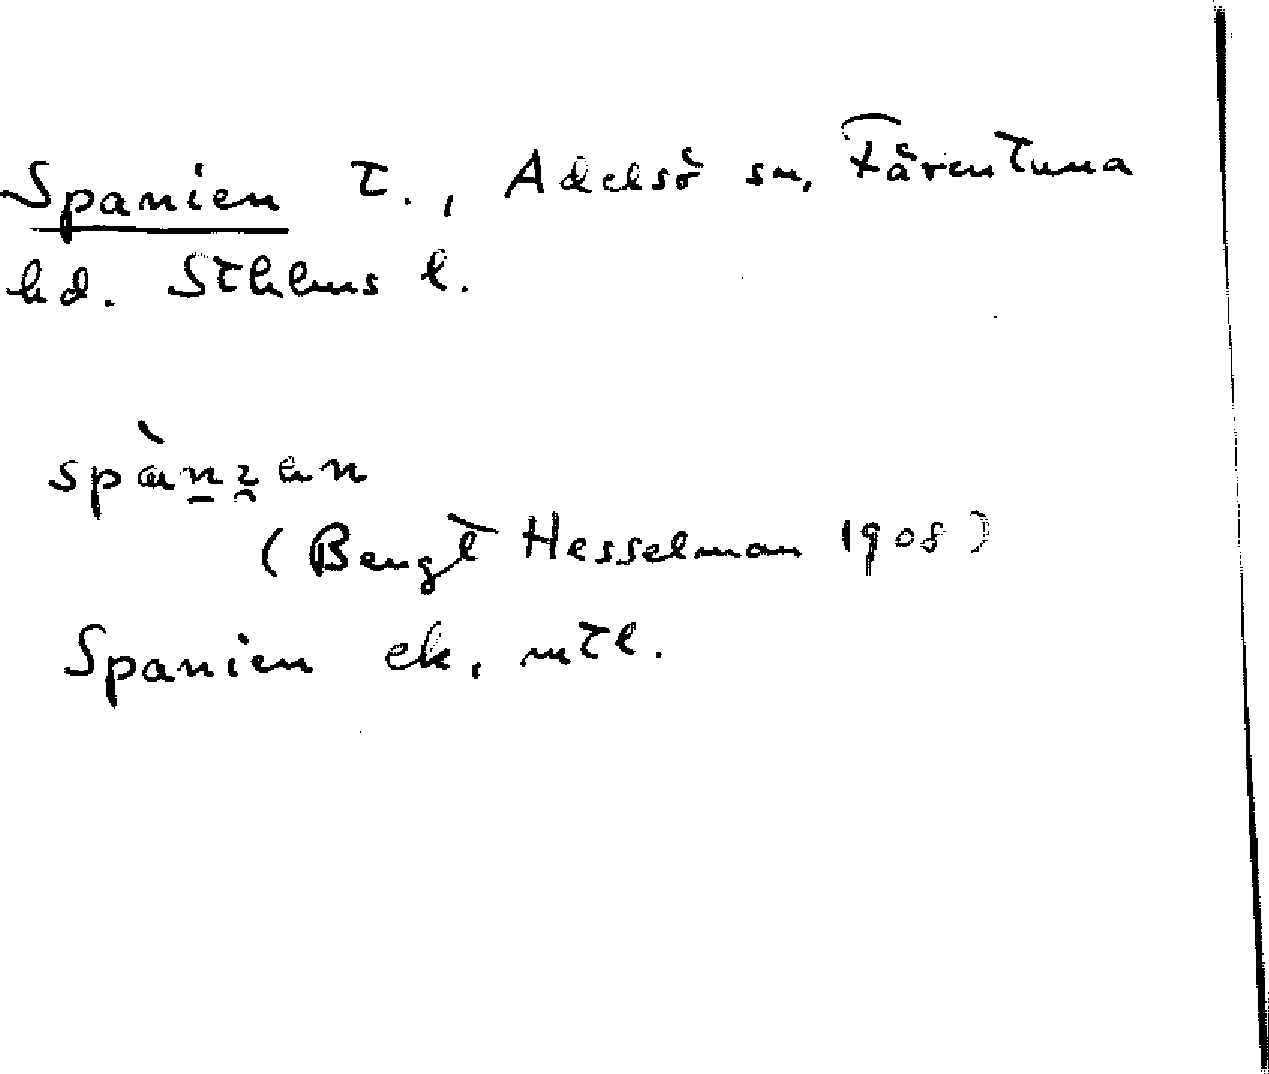 Spanien t., Adelsö sn, Färentuna
hd. Sthlms l.
(Bengt Hesselman 1908)
Spanien ek, mtl.